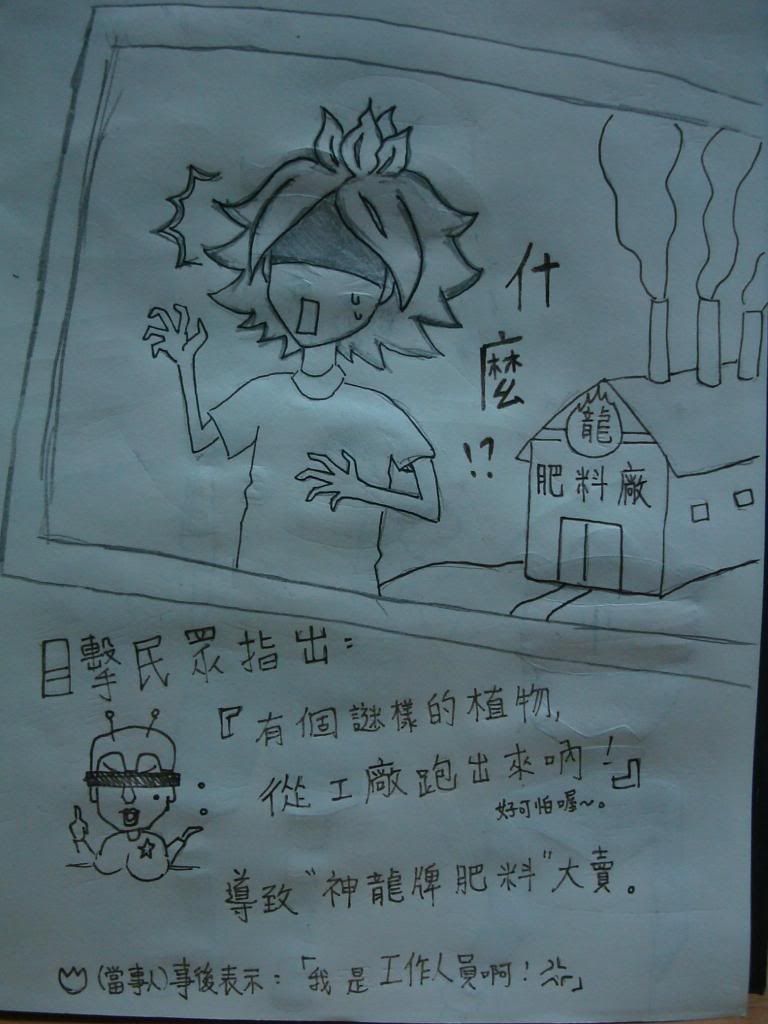 什麼!?
龍
肥料廠
目擊民眾指出：
『有個謎樣的植物，
從工廠跑出來吶！』
好可怕喔～。
導致"神龍牌肥料"大賣。
(當事人)事後表示：「我是工作人員啊！」